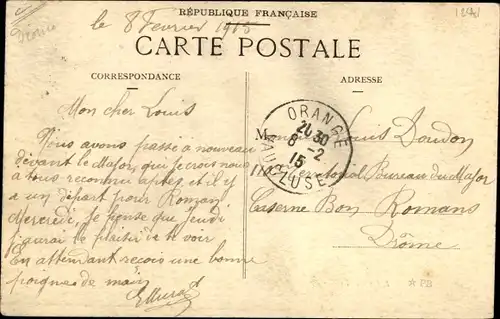 RÉPUBLIQUE FRANÇAISE
le 8 Fevrier 1915
CARTE POSTALE
CORRESPONDANCE
Mon cher Louis
Nous avons passé à nouveau
devant le Major, qui je crois nous
a tous reconnu aptes, et il y
a un départ pour Romans
Mercredi, je pense que jeudi
j'aurai le plaisir de te voir
En attendant reçois une bonne
poignée de main
ADRESSE
ORANGE
20 30
8 - 2
15
VAUCLUSE
M Louis Doudon
Territorial Bureau du Major
Caserne Bon Romans
Drôme
Drôme